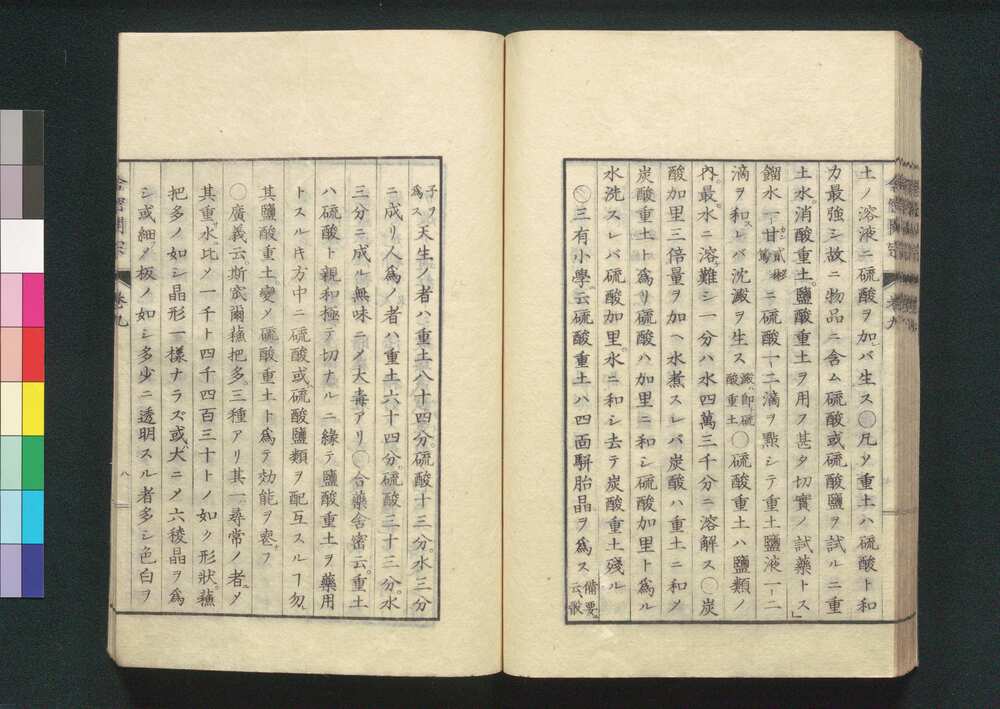 土ノ溶液ニ硫酸ヲ加レバ生ス○凡ソ重土ハ硫酸ト和
力最強シ故ニ物品ニ含ム硫酸或硫酸鹽ヲ試ルニ重
土水。消酸重土。鹽酸重土ヲ用フ甚タ切實ノ試藥トス」
餾水一甘ニ硫酸一二滴ヲ點シテ重土鹽液一二
滴ヲ和スレバ沈澱ヲ生ス澱ハ即硫酸重土○硫酸重土ハ鹽類ノ
内。最。水ニ溶難シ一分ハ水四萬三千分ニ溶解ス○炭
酸加里三倍量ヲ加ヘ水煮スレバ炭酸ハ重土ニ和メ
炭酸重土ト爲リ硫酸ハ加里ニ和シ硫酸加里ト爲ル
水洗スレバ硫酸加里。水ニ和シ去テ炭酸重土殘ル
○三有小學云硫酸重土ハ四面駢胎晶ヲ爲ス備要云骰
子ヲ爲ス天生ノ者ハ重土八十四分硫酸十三分。水三分
ニ成リ人爲ノ者ハ重土六十四分。硫酸三十三分。水
三分ニ成ル無味ニメ大毒アリ○合藥舍密云。重土
ハ硫酸ト親和極テ切ナルニ緣テ鹽酸重土ヲ藥用
トスル片方中ニ硫酸或硫酸鹽類ヲ配互スルヿ勿
其鹽酸重土變メ硫酸重土ト爲テ効能ヲ
○廣義云。斯宸爾蘓把多。三種アリ其一尋常ノ者メ
其重水。比メ一千ト四千四百三十トノ如ク形狀。蘓
把多ノ如シ晶形一樣ナラズ或大ニメ六稜晶ヲ爲
シ或細メ板ノ如シ多少ニ透明スル者多シ色白ヲ
舍密開宗
卷九
八